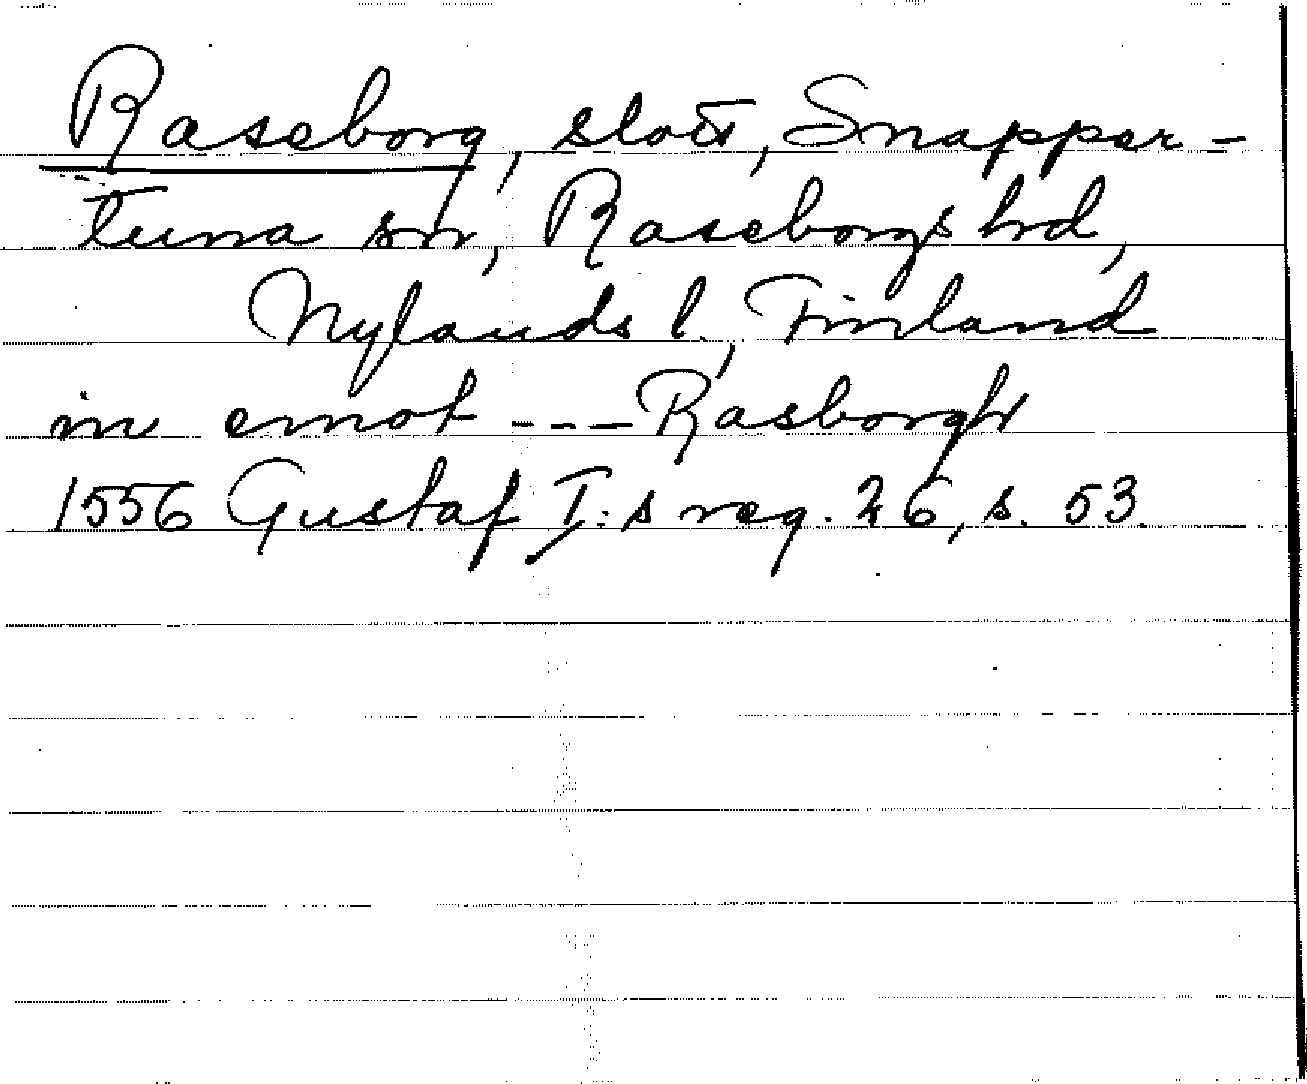 Raseborg, slott, Snapper-
tuna sn, Raseborgs hd,
Nylands l., Finland
in emot --- Rasborgh
1556 Gustaf I:s reg. 26, s. 53.